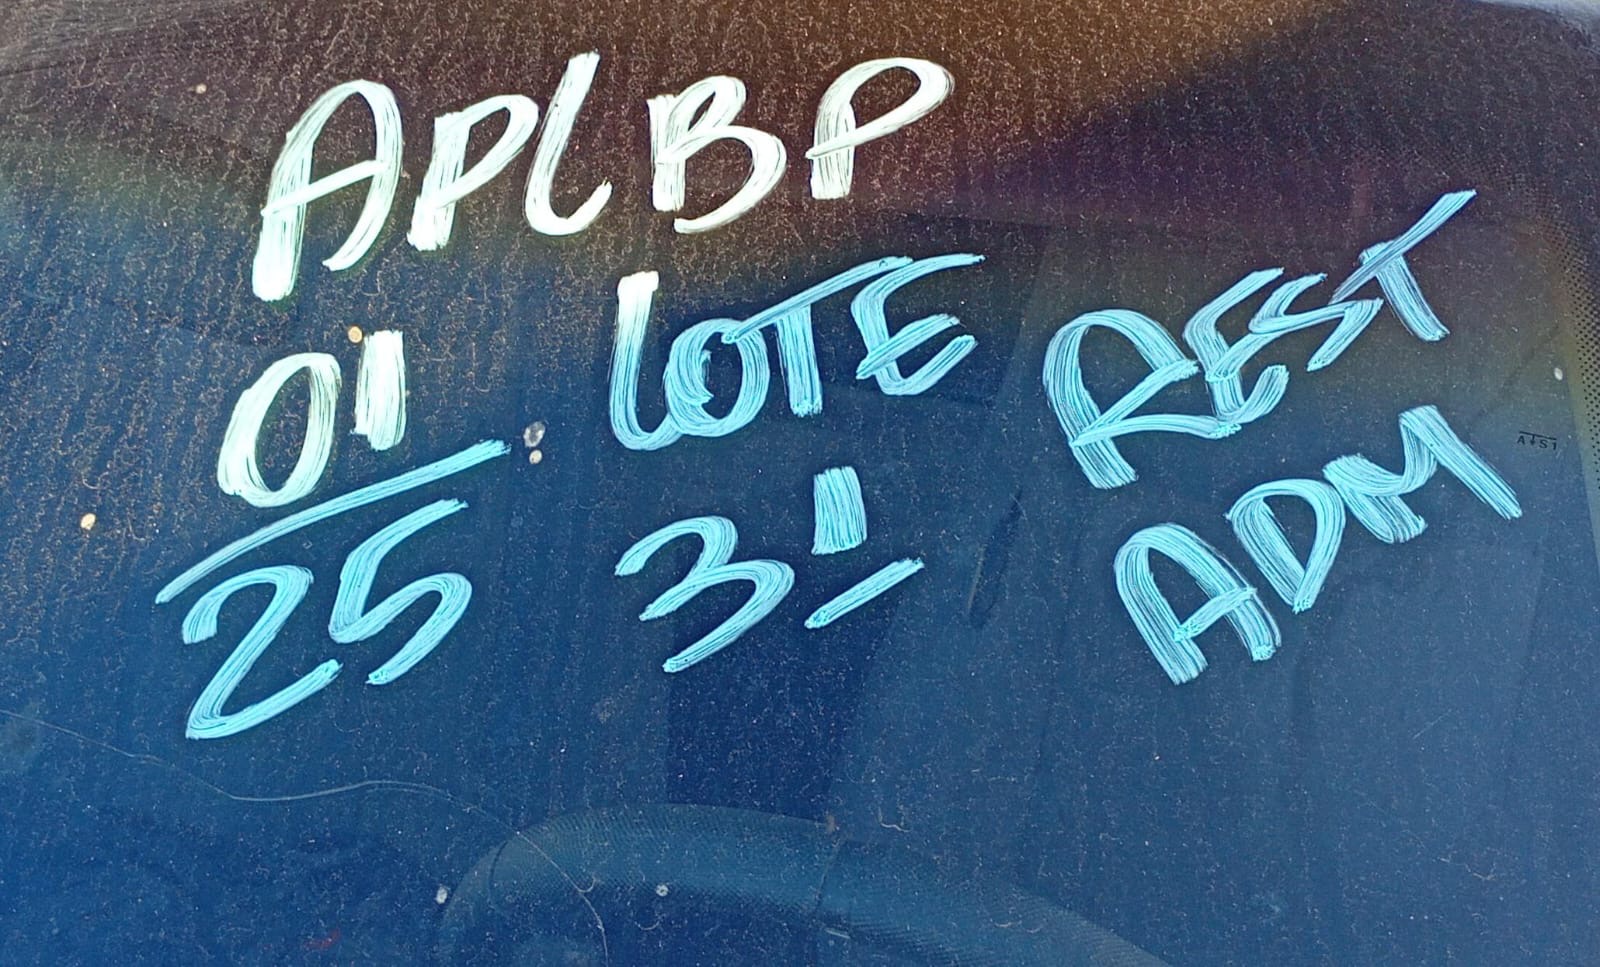 APLBP
01/25
LOTE 31
REST ADM